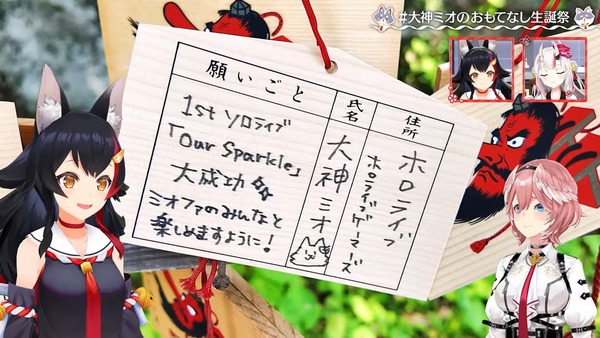 #大神ミオのおもてなし生誕祭
願いごと
1st ソロライブ
「Our Sparkle」
大成功
ミオファのみんなと
楽しめますように!
氏名
大神ミオ
住所
ホロライブ
ホロライブゲーマーズ